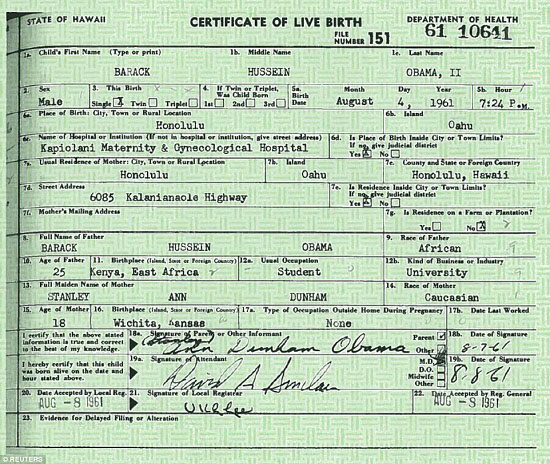 STATE OF HAWAII CERTIFICATE OF LIVE BIRTH DEPARTMENT OF HEALTH
FILE NUMBER 151 61 10641
1a. Child's First Name (Type or print) 1b. Middle Name 1c. Last Name
BARACK HUSSEIN OBAMA, II
2. Sex 3. This Birth 4. If Twin or Triplet, Was Child Born 5a. Birth Date Month Day Year 5b. Hour
Male Single X Twin Triplet 1st 2nd 3rd August 4, 1961 7:24 P.M.
6a. Place of Birth: City, Town or Rural Location 6b. Island
Honolulu Oahu
6c. Name of Hospital or Institution (If not in hospital or institution, give street address) 6d. Is Place of Birth Inside City or Town Limits? If no, give judicial district
Kapiolani Maternity & Gynecological Hospital Yes X No
7a. Usual Residence of Mother: City, Town or Rural Location 7b. Island 7c. County and State or Foreign Country
Honolulu Oahu Honolulu, Hawaii
7d. Street Address 7e. Is Residence Inside City or Town Limits? If no, give judicial district
6085 Kalanianaole Highway Yes X No
7f. Mother's Mailing Address 7g. Is Residence on a Farm or Plantation?
Yes No X
8. Full Name of Father 9. Race of Father
BARACK HUSSEIN OBAMA African
10. Age of Father 11. Birthplace (Island, State or Foreign Country) 12a. Usual Occupation 12b. Kind of Business or Industry
25 Kenya, East Africa Student University
13. Full Maiden Name of Mother 14. Race of Mother
STANLEY ANN DUNHAM Caucasian
15. Age of Mother 16. Birthplace (Island, State or Foreign Country) 17a. Type of Occupation Outside Home During Pregnancy 17b. Date Last Worked
18 Wichita, Kansas None
I certify that the above stated information is true and correct to the best of my knowledge. 18a. Signature of Parent or Other Informant Parent Other 18b. Date of Signature
(Stanley) Ann Dunham Obama 8-7-61
I hereby certify that this child was born alive on the date and hour stated above. 19a. Signature of Attendant M.D. D.O. Midwife Other 19b. Date of Signature
David A Sinclair 8-8-61
20. Date Accepted by Local Reg. 21. Signature of Local Registrar 22. Date Accepted by Reg. General
AUG -8 1961 AUG -8 1961
23. Evidence for Delayed Filing or Alteration
© REUTERS